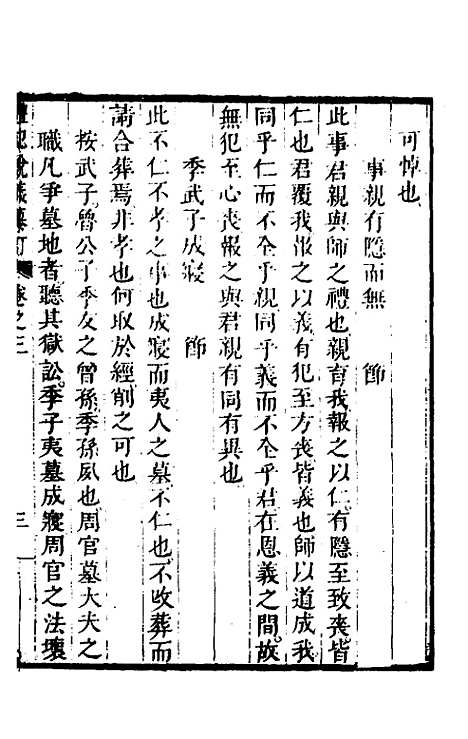 可悼也
事親有隱而無　節
此事君親與師之禮也親育我報之以仁有隱至致喪皆
仁也君覆我報之以義有犯至方喪皆義也師以道成我
同乎仁而不全乎親同乎義而不全乎君在恩義之間故
無犯至心喪報之與君親有同有異也
季武子成寢　節
此不仁不孝之事也成寢而夷人之墓不仁也不改葬而
請合葬焉非孝也何取於經削之可也
按武子魯公子季友之曾孫季孫夙也周官墓大夫之
職凡爭墓地者聽其獄訟季子夷墓成寢周官之法壞
禮記說義纂訂　卷之三　三